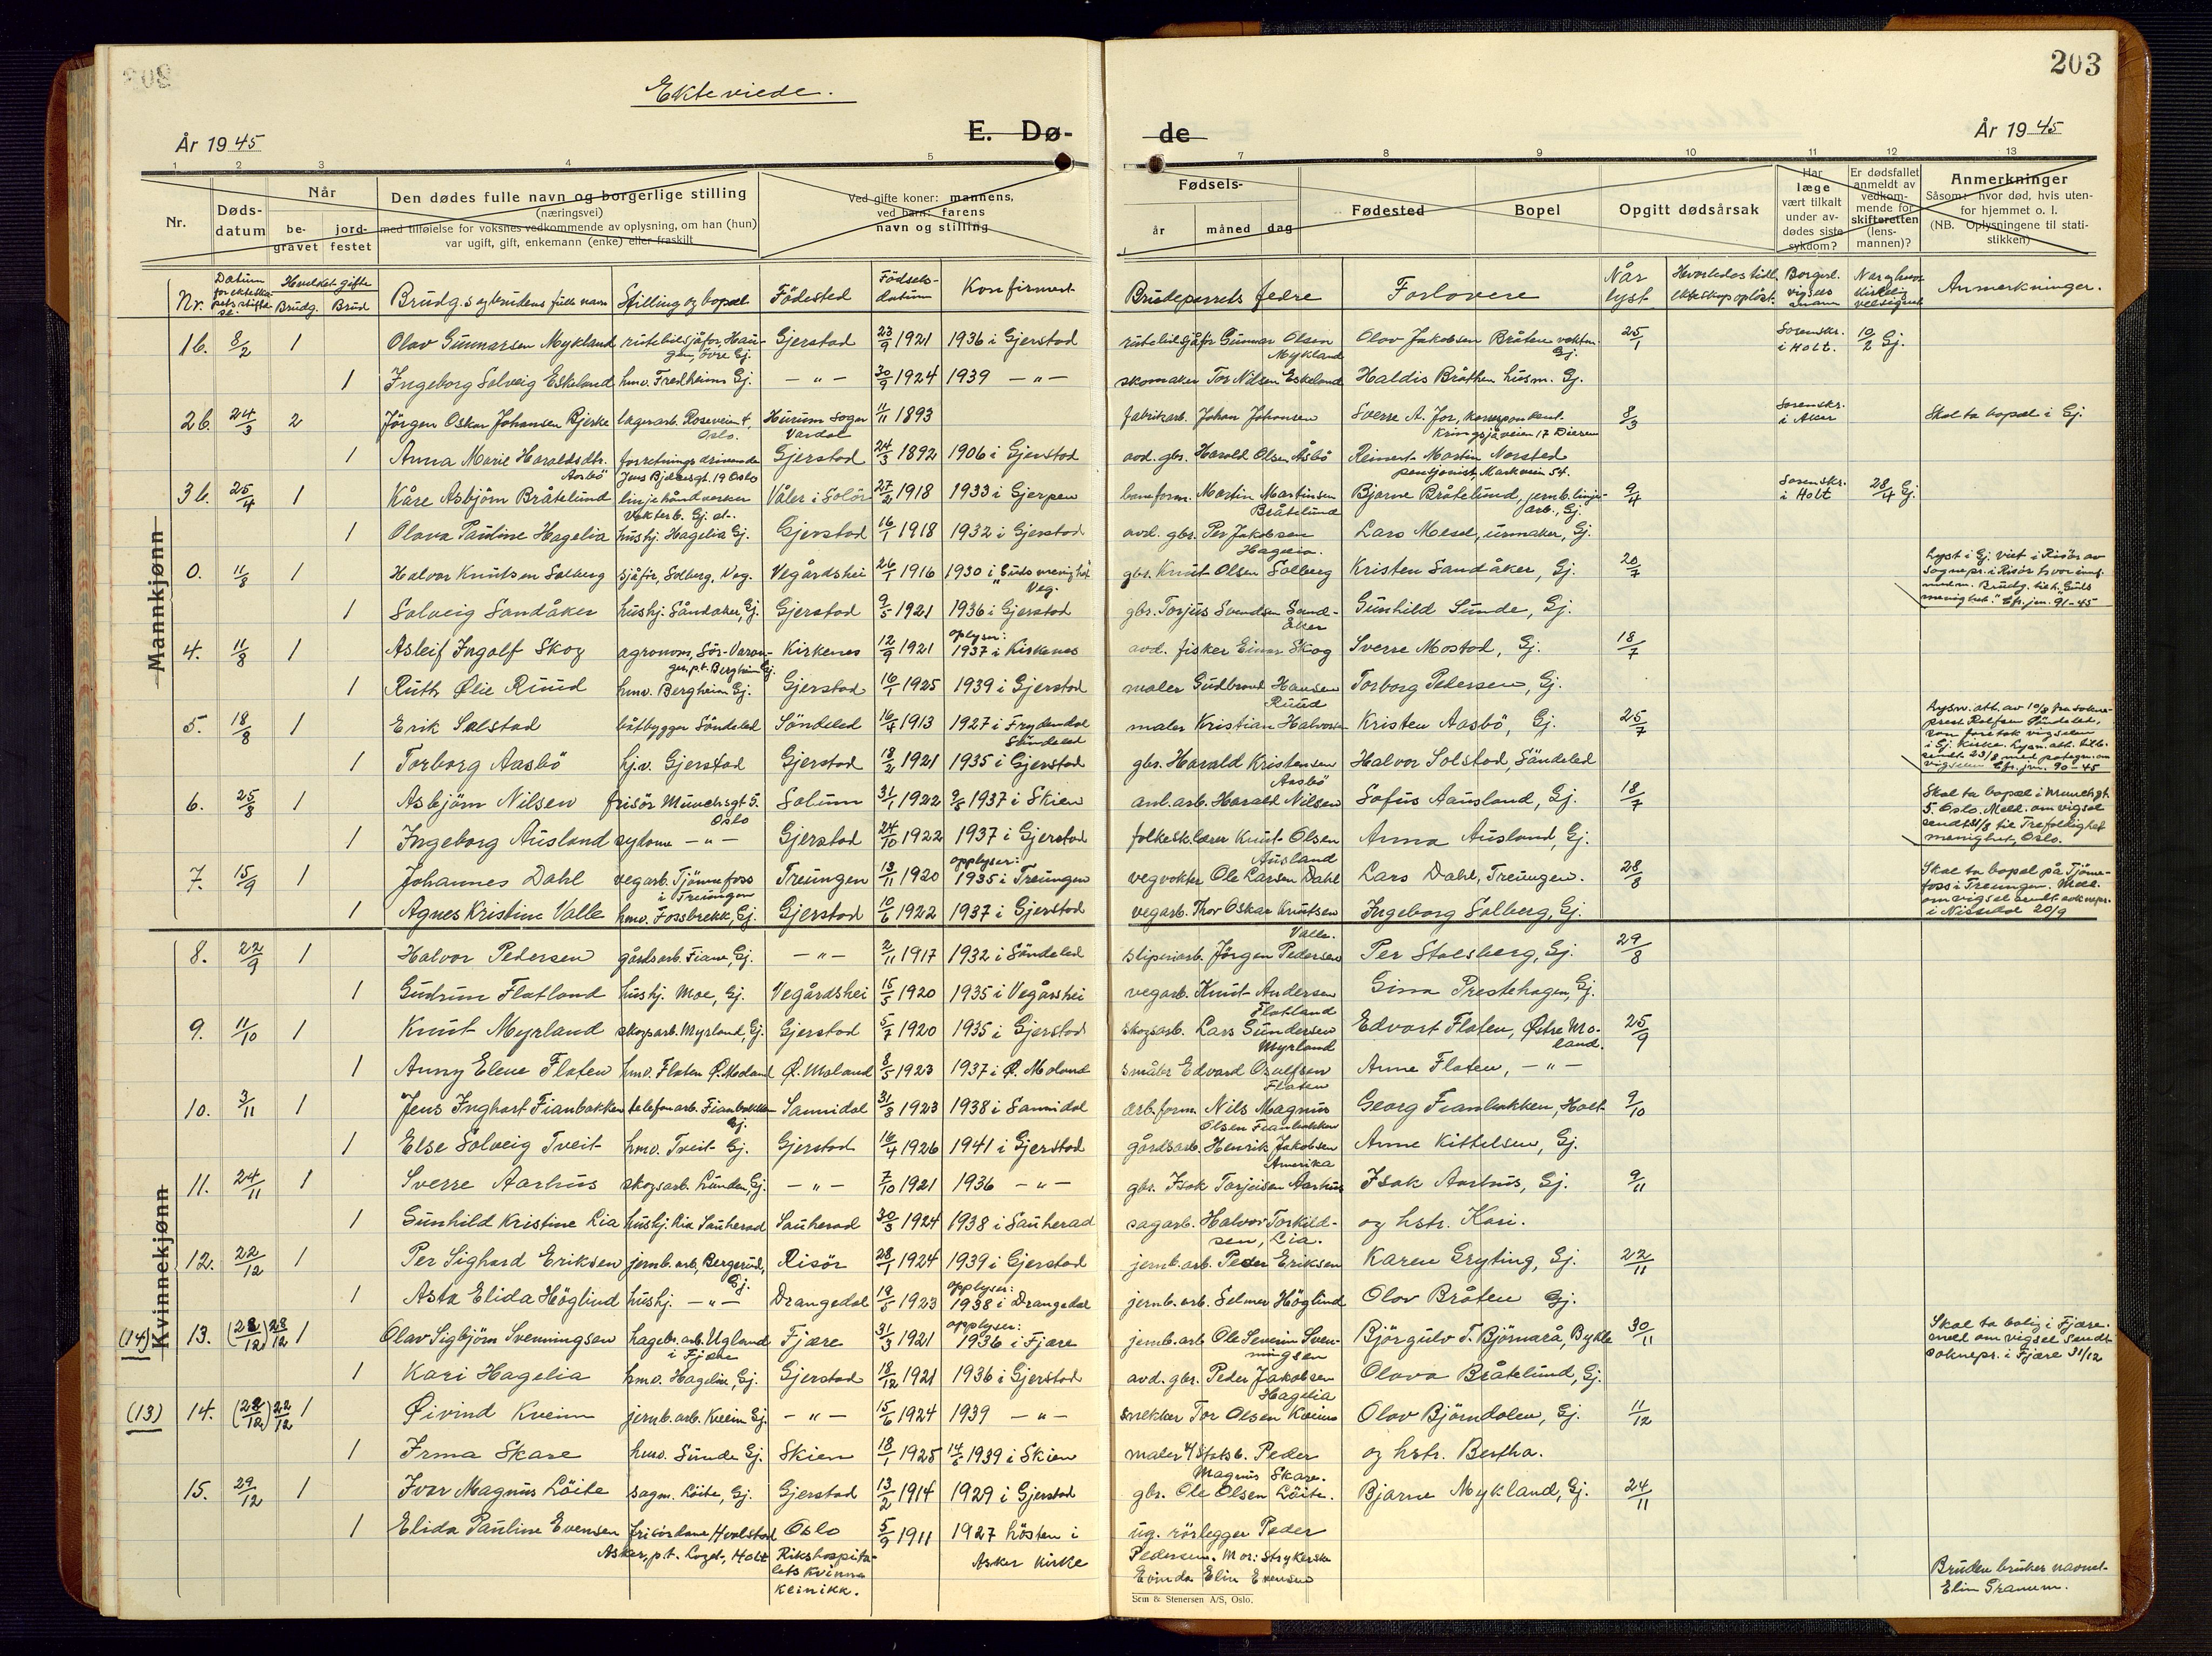 203
Ekteviede.
År 1945
E. Dø-
de
År 1945
1 2 3 4 5
7 8 9 10 11 12 13
Nr.
Døds-
datum
Når
be-
gravet
jord-
festet
Den dødes fulle navn og borgerlige stilling
(næringsvei)
med tilføielse for voksnes vedkommende av oplysning, om han (hun)
var ugift, gift, enkemann (enke) eller fraskilt
Ved gifte koner: mannens,
ved barn: farens
navn og stilling
Fødsels-
år måned dag
Fødested
Bopel
Opgitt dødsårsak
Har
læge
vært tilkalt
under av-
dødes siste
sykdom?
Er dødsfallet
anmeldt av
vedkom-
mende for
skifteretten
(lens-
mannen)?
Anmerkninger
Såsom: hvor død, hvis uten-
for hjemmet o. l.
(NB. Oplysningene til stati-
stikken)
Nr. Brudg. Brud Brudg.s og brudens fulle navn Stilling og bopæl Fødested Fødsels-datum Konfirmert
Brudeparrets fedre Forlovere Når lyst Anmerkninger.
Mannkjønn
Kvinnekjønn
1b. 8/2 1 Olav Gunnarsen Mykland rutebilsjåfør, Haugen, øvre Gj. Gjerstad 23/9 1921 1936 i Gjerstad rutebilsjåfør Gunnar Olsen Mykland Olav Jakobsen Bråten vokter Gj. 25/1 Sorenskr. i Holt. 10/2 Gj.
1 Ingeborg Solveig Eskeland hmv. Fredheim Gj. — " — 30/9 1924 1939 — " — skomaker Tor Nilsen Eskeland Haldis Bråthen husm. Gj.
2b. 24/3 2 Jörgen Oskar Johansen Bjerke lagerarb. Rosevein 4, Oslo. Hurum Sogn Vardal 11/11 1893 fabrikarb. Johan Johansen Sverre A. Jor, korrespondent Kringsjåveien 17 8/3 Sorenskr. i Aker Skal ta bopæl i Gj.
1 Anna Marie Haraldsdtr. Aasbö forretningsdrivende Jens Bjelkesgt. 19 Oslo Gjerstad 24/3 1892 1906 i Gjerstad avd. gbr. Harald Olsen Åsbö Reinert Martin Norsted pensjonist, Markvein 54.
3b. 25/4 1 Kåre Asbjörn Bråtelund linjehåndverker Vokterb. Gj. st. Våler i Solör 27/2 1918 1933 i Gjerpen baneform. Martin Martinsen Bråtelund Bjarne Bråtelund, jernb. linjearb., Gj. 9/4 Sorenskr. i Holt 28/4 Gj.
1 Olava Pauline Hagelia hushj. Hagelia Gj. Gjerstad 16/1 1918 1932 i Gjerstad avd. gbr. Per Jakobsen Hagelia. Lars Mesel, urmaker, Gj.
0. 11/8 1 Halvor Knutsen Solberg sjåför, Solberg, Veg. Vegårdshei 26/1 1916 1930 i "Guds menighet" Veg. gbr. Knut Olsen Solberg Kristen Sandåker, Gj. 20/7 Lyst i Gj. viet i Risör av sognepr. i Risör Brudg. tilh. "Guds menighet." Cfr. jnr. 91-45
1 Solveig Sandåker hushj. Sandåker, Gj. Gjerstad 9/5 1921 1936 i Gjerstad gbr. Torjus Svendsen Sandåker Gunhild Sunde, Gj.
4. 11/8 1 Asleif Ingolf Skog agronom, Sör-Varanger p.t. Bergheim Gj. Kirkenes 12/9 1921 oplyser: 1937 i Kirkenes avd. fisker Einar Skog Sverre Mostad, Gj. 18/7
1 Ruth Ølie Ruud hmv. Bergheim Gj. Gjerstad 16/1 1925 1939 i Gjerstad maler Gudbrand Hansen Ruud Torborg Pedersen, Gj.
5. 18/8 1 Erik Solstad båtbygger Söndeled Söndeled 16/4 1913 1927 i Frydendal Söndeled maler Kristian Halvorsen Kristen Aasbö, Gj. 25/7 Lysn. att. av 10/8 fra sokneprest Rolfsen Söndeled, som foretok vigselen i Gj. kirke. Lysn. att. tilb. sendt 23/8 med påtegn. om vigselen Cfr. jnr. 90-45
1 Torborg Aasbö hj.v. Gjerstad Gjerstad 18/2 1921 1935 i Gjerstad gbr. Harald Kristensen Aasbö Halvor Solstad, Söndeled
6. 25/8 1 Asbjörn Nilsen frisör Munchsgt 5. Oslo Solum 31/1 1922 9/5 1937 i Skien anl. arb. Harald Nilsen Sofus Ausland, Gj. 18/7 Skal ta bopæl i Munchgt. 5 Oslo. Meld. om vigsel sendt 31/8 til Trefoldighet menighet, Oslo.
1 Ingeborg Ausland sydame — " — Gjerstad 24/10 1922 1937 i Gjerstad folkesk.lærer Knut Olsen Ausland Anna Ausland, Gj.
7. 15/9 1 Johannes Dahl vegarb. Tjönnefoss i Treungen Treungen 13/11 1920 opplyser: 1935 i Treungen vegvokter Ole Larsen Dahl Lars Dahl, Treungen. 28/8 Skal ta bopæl på Tjönnefoss i Treungen. Meld. om vigsel sendt soknepr. i Nissedal 20/9
1 Agnes Kristine Valle hmv. Fossbrekk, Gj. Gjerstad 10/6 1922 1937 i Gjerstad vegarb. Thor Oskar Knutsen Valle. Ingeborg Solberg, Gj.
8. 22/9 1 Halvor Pedersen gårdsarb. Fiane, Gj. — " — 2/11 1917 1932 i Söndeled sliperiarb. Jörgen Pedersen Per Stolsberg, Gj. 29/8
1 Gudrun Flatland hushj. Moe, Gj. Vegårdshei 15/5 1920 1935 i Vegårshei vegarb. Knut Andersen Flatland Gina Prestehagen, Gj.
9. 11/10 1 Knut Myrland skogsarb. Myrland, Gj. Gjerstad 5/7 1920 1935 i Gjerstad skogsarb. Lars Gundersen Myrland Edvart Flaten, Østre Moland. 25/9
1 Anny Elene Flaten hmv. Flaten Ø. Moland Ø. Moland 8/5 1923 1937 i Ø. Moland småbr Edvard Osulfsen Flaten Anne Flaten, — " —
10. 3/11 1 Jens Inghart Fianbakken telefonarb. Fianbakken Gj. Sannidal 31/3 1923 1938 i Sannidal arb. form. Nils Magnus Olsen Fianbakken Georg Fianbakken, Holt 9/10
1 Else Solveig Tveit hmv. Tveit Gj. Gjerstad 16/4 1926 1941 i Gjerstad gårdsarb. Henrik Jakobsen Amerika Anne Kittelsen, Gj.
11. 24/11 1 Sverre Aarhus skogsarb. Lunden, Gj. — " — 7/10 1921 1936 — " — gbr. Isak Torjusen Aarhus Isak Aarhus, Gj. 9/11
1 Gunhild Kristine Lia hushj. Lia Sauherad Sauherad 30/3 1924 1938 i Sauherad sagarb. Halvor Torkildsen, Lia. og hstr. Kari.
12. 22/12 1 Per Sighard Eriksen jernb. arb, Bergerud, Gj. Risör 28/1 1924 1939 i Gjerstad jernb. arb. Peder Eriksen Karen Gryting, Gj. 22/11
1 Asta Elida Höglind hushj. — " — Drangedal 19/5 1923 opplyser: 1938 i Drangedal jernb. arb. Selmer Höglind Olav Bråten Gj.
(14) 13. (28/12) 28/12 1 Olav Sigbjörn Svenningsen hagebr. arb. Ugland i Fjære Fjære 31/3 1921 opplyser: 1936 i Fjære jernb. arb Ole Severin Svenningsen Björgulv T. Björnarå, Bykle 30/11 Skal ta bolig i Fjære. meld om vigsel sendt soknepr. i Fjære 31/12
1 Kari Hagelia hmv. Hagelia, Gj. Gjerstad 18/12 1921 1936 i Gjerstad avd. gbr. Peder Jakobsen Hagelia Olava Bråtelund, Gj.
(13) 14. (28/12) 22/12 1 Øivind Kveim jernb. arb. Kveim Gj. — " — 15/6 1924 1939 — " — snekker Tor Olsen Kveim Olav Björndalen, Gj. 11/12
1 Irma Skare hmv. Sunde Gj. Skien 18/1 1925 14/5 1939 i Skien maler v/Statsb. Peder Magnus Skare. og hstr. Bertha.
15. 29/12 1 Ivar Magnus Löite sagm. Löite, Gj. Gjerstad 13/2 1914 1929 i Gjerstad gbr. Ole Olsen Löite. Bjarne Mykland, Gj. 24/11
1 Elida Pauline Evensen frisördame Hvalstad Asker, p.t. Holt Oslo Rikshospitalets kvinneklinikk. 5/9 1911 1927 hösten i Asker kirke ug. rörlegger Peder Pedersen. Mor: Strykerske Elin Evensen
Bruden bruker navnet
Elin Granum.
Sem & Stenersen A/S, Oslo.